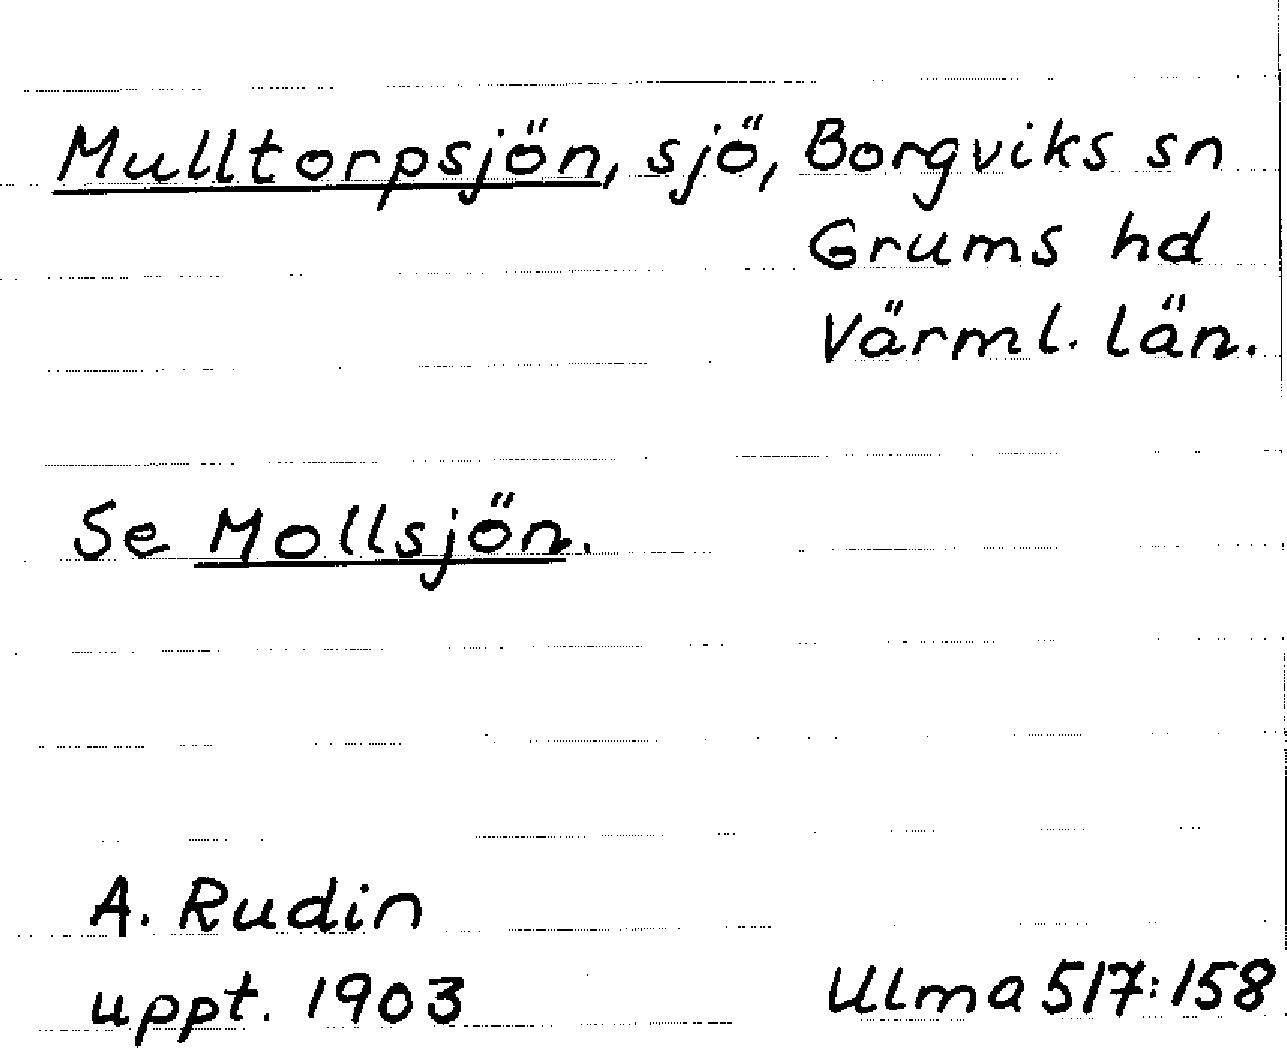 Mulltorpsjön, sjö, Borgviks sn
Grums hd
Värml. län.
Se Mollsjön.
A. Rudin
uppt. 1903
Ulma 517:158